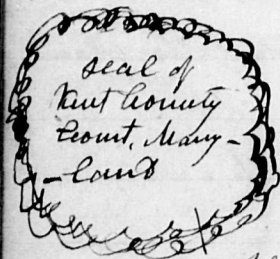 Seal of
Kent County
Court, Mary-
-land